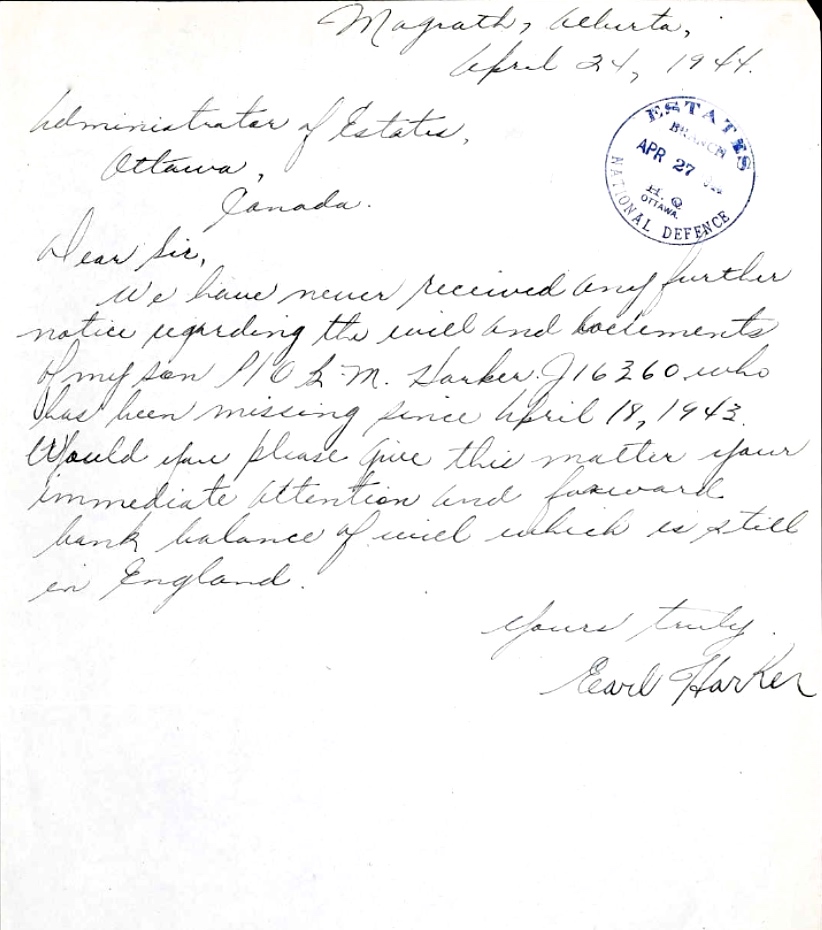 Magrath, Alberta,
April 24, 1944.
Administrator of Estates,
Ottawa,
Canada.
ESTATES
BRANCH
APR 27
H. Q.
OTTAWA.
NATIONAL DEFENCE
Dear Sir,
We have never received any further
notice regarding the will and documents
of my son P/O M. Harker. J16360 who
has been missing since April 18, 1943.
Would you please give this matter your
immediate attention and forward
bank balance of will which is still
in England.
Yours truly.
Earl Harker